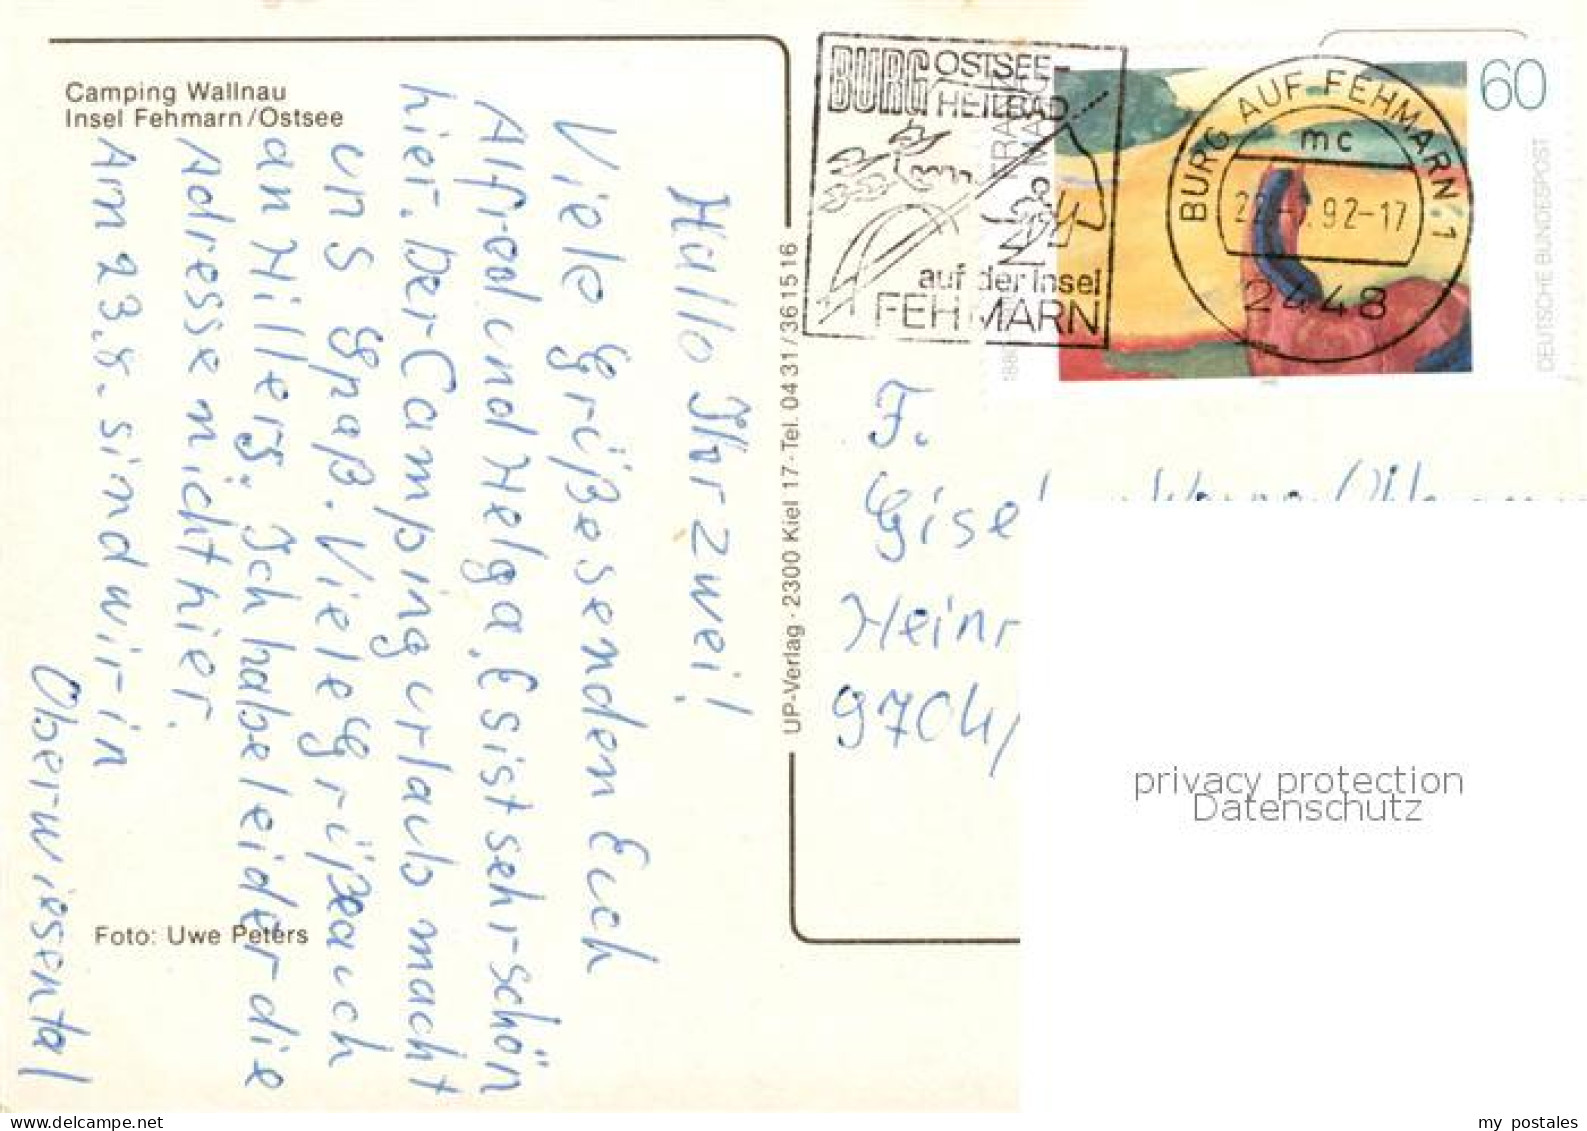 Camping Wallnau
Insel Fehmarn/Ostsee
Hallo Ihr zwei!
Viele Grüße senden Euch
Alfred und Helga. Es ist sehr schön
hier. Der Campingurlaub macht
uns Spaß. Viele Grüße auch
an Hillers. Ich habe leider die
Adresse nicht hier.
Am 23.8. sind wir in
Oberwiesental
Foto: Uwe Peters
UP-Verlag · 2300 Kiel 17 · Tel. 04 31/36 15 16
BURG OSTSEE-
HEILBAD
auf der Insel
FEHMARN
BURG AUF FEHMARN 1
mc
92-17
2448
60
DEUTSCHE BUNDESPOST
F.
Heinr
9704/
privacy protection
Datenschutz
www.delcampe.net
my postales